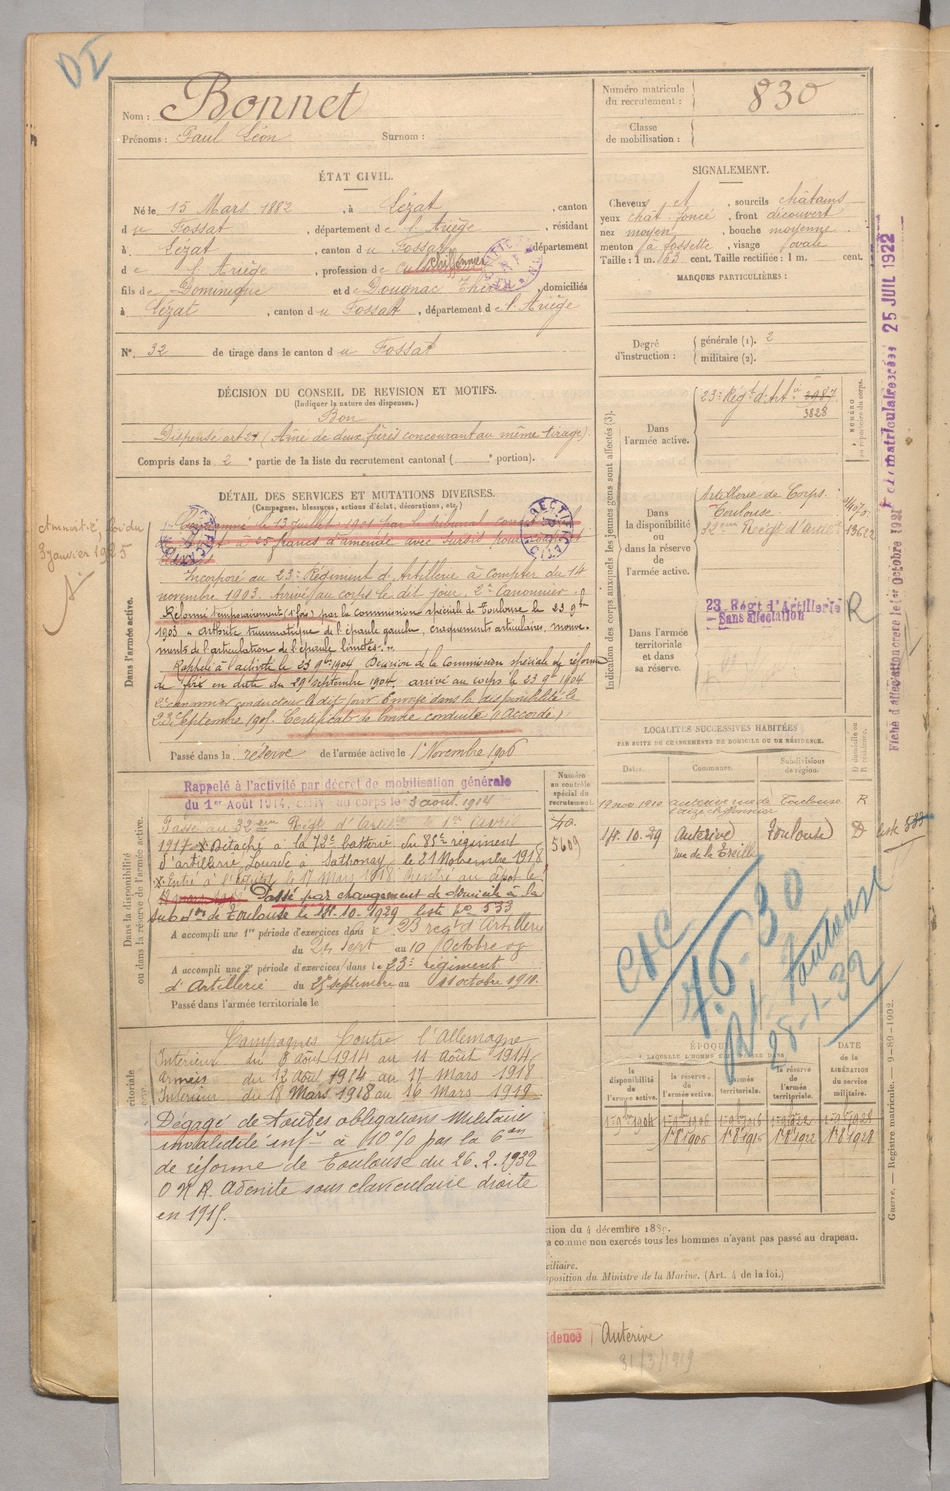 DI
Nom : Bonnet
Prénoms : Paul Léon Surnom :
Numéro matricule
du recrutement : 830
Classe
de mobilisation :
ÉTAT CIVIL.
Né le 15 Mars 1882, à Lézat, canton
du Fossat, département de l'Ariège, résidant
à Lézat, canton du Fossat, département
de l'Ariège, profession de cultivateur chiffonnier
fils de Dominique et de Dougnac Thérèse, domiciliés
à Lézat, canton du Fossat, département de l'Ariège
N° 32 de tirage dans le canton du Fossat
SIGNALEMENT.
Cheveux et, sourcils châtains
yeux chat. foncé, front découvert
nez moyen, bouche moyenne
menton à fossette, visage ovale
Taille : 1 m. 63 cent. Taille rectifiée : 1 m. cent.
MARQUES PARTICULIÈRES :
Degré
d'instruction :
générale (1). 2
militaire (2).
DÉCISION DU CONSEIL DE REVISION ET MOTIFS.
(Indiquer la nature des dispenses.)
Bon
Dispensé art 21 (Aîné de deux frères concourant au même tirage)
Compris dans la 2e partie de la liste du recrutement cantonal ( e portion).
DÉTAIL DES SERVICES ET MUTATIONS DIVERSES.
(Campagnes, blessures, actions d'éclat, décorations, etc.)
Amnistié loi du
3 janvier 1925
Dans l'armée active.
à 25 francs d'amende avec sursis pour
Incorporé au 23e Régiment d'Artillerie à compter du 14
novembre 1903. Arrivé au corps le dit jour. 2e Canonnier
Réformé temporairement (1 fois) par la commission spéciale de Toulouse le 23 9bre
1903 « Arthrite traumatique de l'épaule gauche, craquements articulaires, mouve-
ments de l'articulation de l'épaule limités. »
Rappelé à l'activité le 23 9bre 1904 Décision de la Commission spéciale de réforme
de Foix en date du 29 septembre 1904 arrivé au corps le 23 9bre 1904
2e canonnier conducteur le dit jour Envoyé dans la disponibilité le
23 septembre 1905. Certificat de bonne conduite "Accordé"
Passé dans la réserve de l'armée active le 1er Novembre 1906
Dans la disponibilité
ou dans la réserve de l'armée active.
Rappelé à l'activité par décret de mobilisation générale
du 1er Août 1914, arrivé au corps le 3 aout 1914
Passé au 32eme Régt d'Artie le 1er Avril
1917 x Détaché à la 72e batterie du 85e régiment
d'artillerie lourde à Sathonay le 21 Novembre 1918
Passé par changement de domicile à la
subdon de Toulouse le 18-10-1929 liste no 533
A accompli une 1re période d'exercices dans le 23 regt d'Artillerie
du 24 Sept au 10 Octobre 09
A accompli une 2e période d'exercices dans le 23e régiment
d'Artillerie du 25 septembre au 11 octobre 1911.
Passé dans l'armée territoriale le
Numéro
au contrôle
spécial du
recrutement.
40.
5609
Campagnes Contre l'Allemagne
Intérieur du 3 Août 1914 au 11 Août 1914
Armées du 12 Août 1914 au 17 Mars 1918
Intérieur du 18 Mars 1918 au 16 Mars 1919
Dégagé de toutes obligations militaires
invalidité infre à 10% par la 6eme
de réforme de Toulouse du 26.2.1932
O N R. Adénite sous claviculaire droite
en 1915.
Indication des corps auxquels les jeunes gens sont affectés (3).
Dans
l'armée active.
23e Régt d'Art
3087
3828
NUMÉRO
au répertoire du corps.
Dans
la disponibilité
ou
dans la réserve
de
l'armée active.
Artillerie de Corps
Toulouse.
32eme Regt d'Artie
13622
Dans l'armée
territoriale
et dans
sa réserve.
23 Régt d'Artillerie
Sans affectation
R
LOCALITÉS SUCCESSIVES HABITÉES
PAR SUITE DE CHANGEMENTS DE DOMICILE OU DE RÉSIDENCE.
Dates. Communes. Subdivisions de région. D domicile ou R résidence.
19 nov. 1910 Toulouse R
18.10.29 Auterive Toulouse D liste 533
rue de la Treille
CAC
7.6.30
R.I. Toulouse
28-1-32
ÉPOQUE
À LAQUELLE L'HOMME
la disponibilité de l'armée active.
la réserve de l'armée active.
l'armée territoriale.
la réserve de l'armée territoriale.
DATE
de la
LIBÉRATION
du service
militaire.
1er 9bre 1904 1er 9bre 1906 1er 9bre 1916 1er 9bre 1922 1er 9bre 1928
1.8.1906 1.8.1916 1.8.1922 1.8.1928
ction du 4 décembre 1889.
comme non exercés tous les hommes n'ayant pas passé au drapeau.
xiliaire.
position du Ministre de la Marine. (Art. 4 de la loi.)
dence Auterive
31/3/1919
Fiche d'affectation créée le 1er Octobre 1921
25 JUIL 1922
Guerre. — Registre matricule. — 9-89-1902.